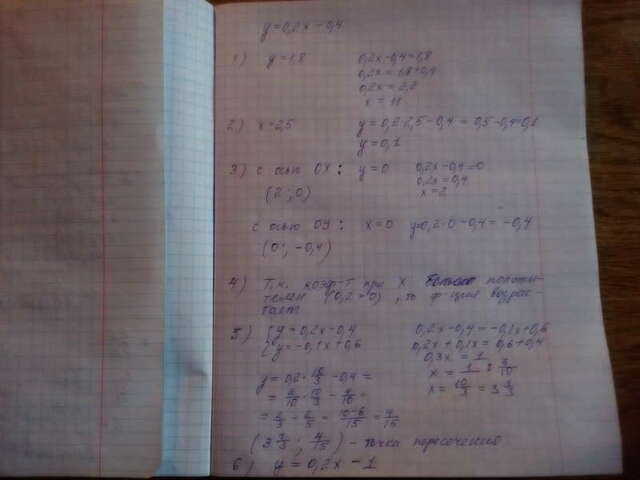 y=0,2x-0,4
1) y=1,8 0,2x-0,4=1,8
0,2x=1,8+0,4
0,2x=2,2
x=11
2) x=2,5 y=0,2·2,5-0,4=0,5-0,4=0,1
y=0,1
3) с осью OX: y=0 0,2x-0,4=0
0,2x=0,4
(2;0) x=2
с осью OY: x=0 y=0,2·0-0,4=-0,4
(0;-0,4)
4) Т.к. коэф-т при x положи-
телен (0,2>0), то ф-ция возрас-
тает
5.) {y=0,2x-0,4 0,2x-0,4=-0,1x+0,6
{y=-0,1x+0,6 0,2x+0,1x=0,6+0,4
0,3x=1
y=0,2·10/3-0,4= x=1:3/10
=2/10·10/3-4/10= x=10/3=3 1/3
=2/3-2/5=10-6/15=4/15
(3 1/3; 4/15) - точка пересечения
6) y=0,2x-1